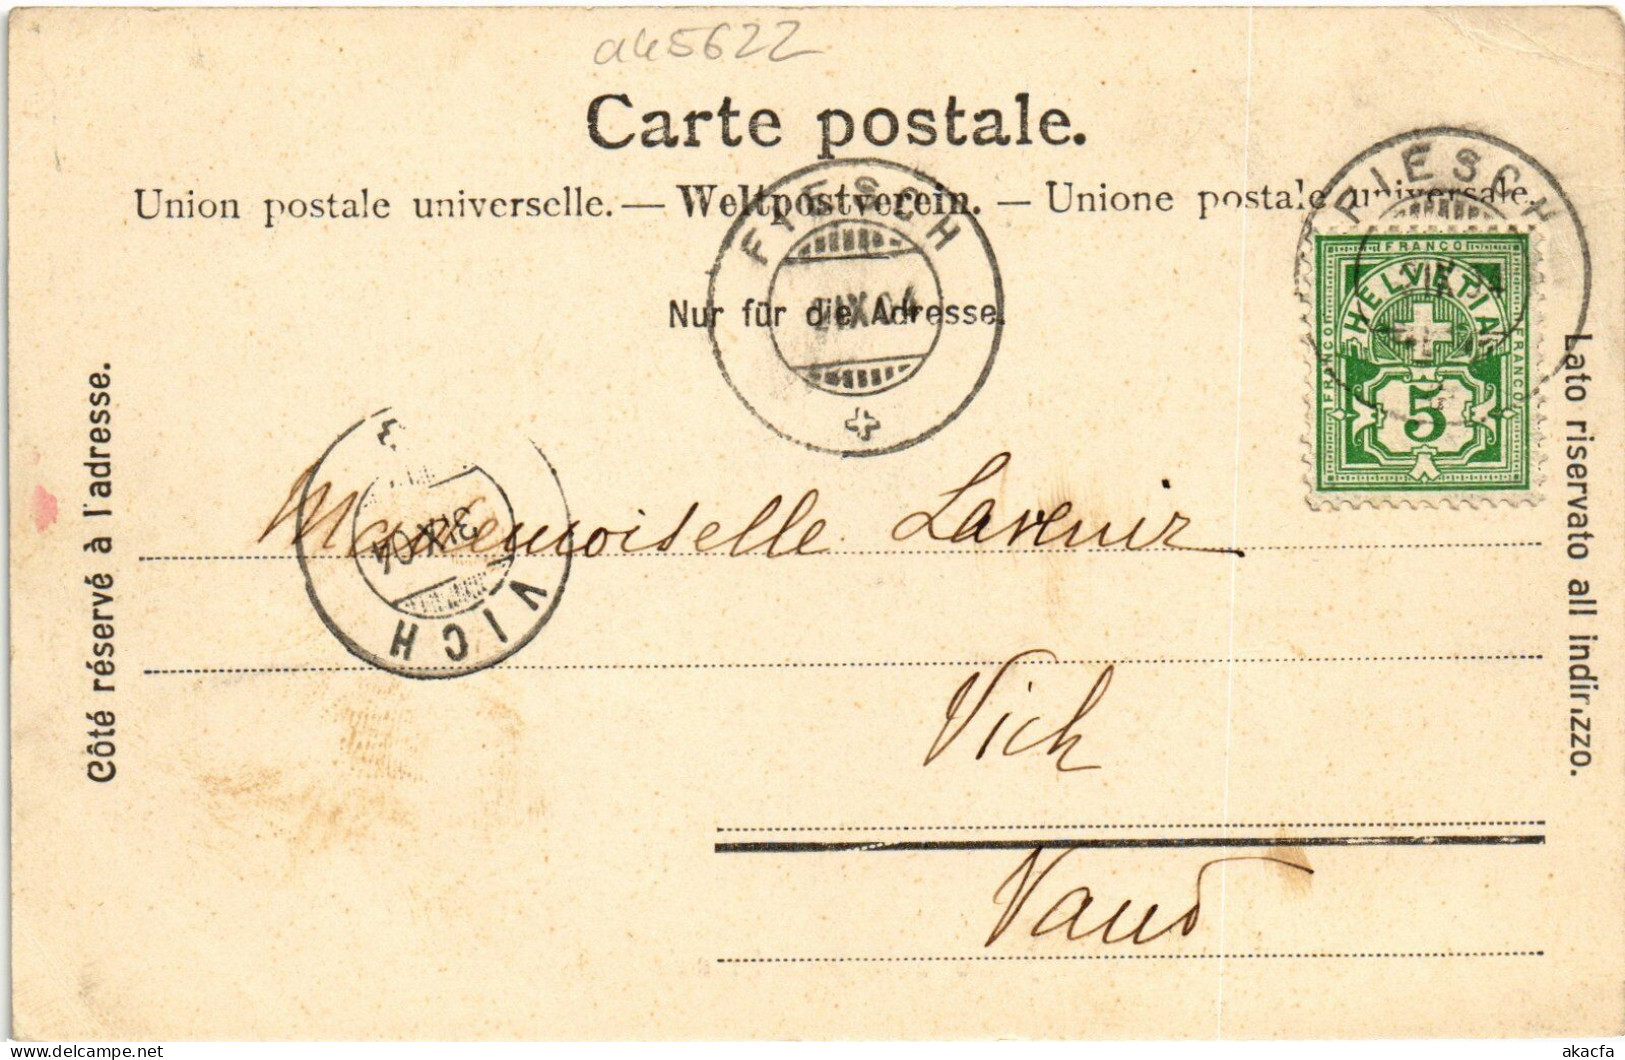 a45622
Carte postale.
Union postale universelle. — Weltpostverein. — Unione postale universale.
Nur für die Adresse.
FIESCH
IX 04
FIESCH
FRANCO
HELVETIA
FRANCO
FRANCO
5
Côté réservé à l'adresse.
Lato riservato all indirizzo.
VICH
3 IX 04
Mademoiselle Lavenir
Vich
Vaud
akacfa